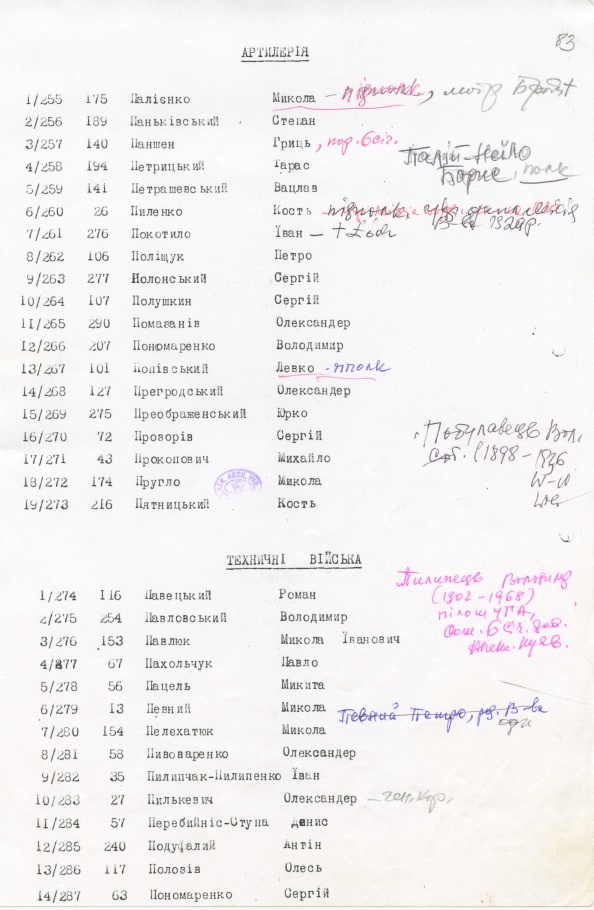 83
АРТИЛЕРІЯ
1/255 175 Палієнко Микола - підполк,
2/256 189 Паньківський Степан
3/257 140 Паншен Гриць, пор. 6 січ.
4/258 194 Петрицький Тарас Палій-Нейло
Борис, полк
5/259 141 Петрашевський Вацлав
6/260 26 Пиленко Кость підполк,
7/261 276 Покотило Іван - + Łódź 192др.
8/262 106 Поліщук Петро
9/263 277 Полонський Сергій
10/264 107 Полушкин Сергій
11/265 290 Помаганів Олександер
12/266 207 Пономаренко Володимир
13/267 101 Попівський Левко - пполк
14/268 127 Прегродський Олександер
15/269 275 Преображенський Юрко
16/270 72 Проворів Сергій
17/271 43 Прокопович Михайло
18/272 174 Пругло Микола
19/273 216 Пятницький Кость
Сот. (1898 - 1926
ТЕХНИЧНІ ВІЙСЬКА
1/274 116 Павецький Роман
2/275 254 Павловський Володимир
3/276 153 Павлюк Микола Іванович
4/277 67 Пахольчук Павло
5/278 56 Пацель Микита
6/279 13 Певний Микола
7/280 154 Пелехатюк Микола
Певний Петро, ред. В-ва
8/281 58 Пивоваренко Олександер
9/282 35 Пилипчак-Пилипенко Іван
10/283 27 Пилькевич Олександер - ген. хор.
11/284 57 Перебийніс-Ступа Денис
12/285 240 Подуфалий Антін
13/286 117 Полозів Олесь
14/287 63 Пономаренко Сергій
Пилипець Володимир
(1902 - 1968)
пілот УПА,